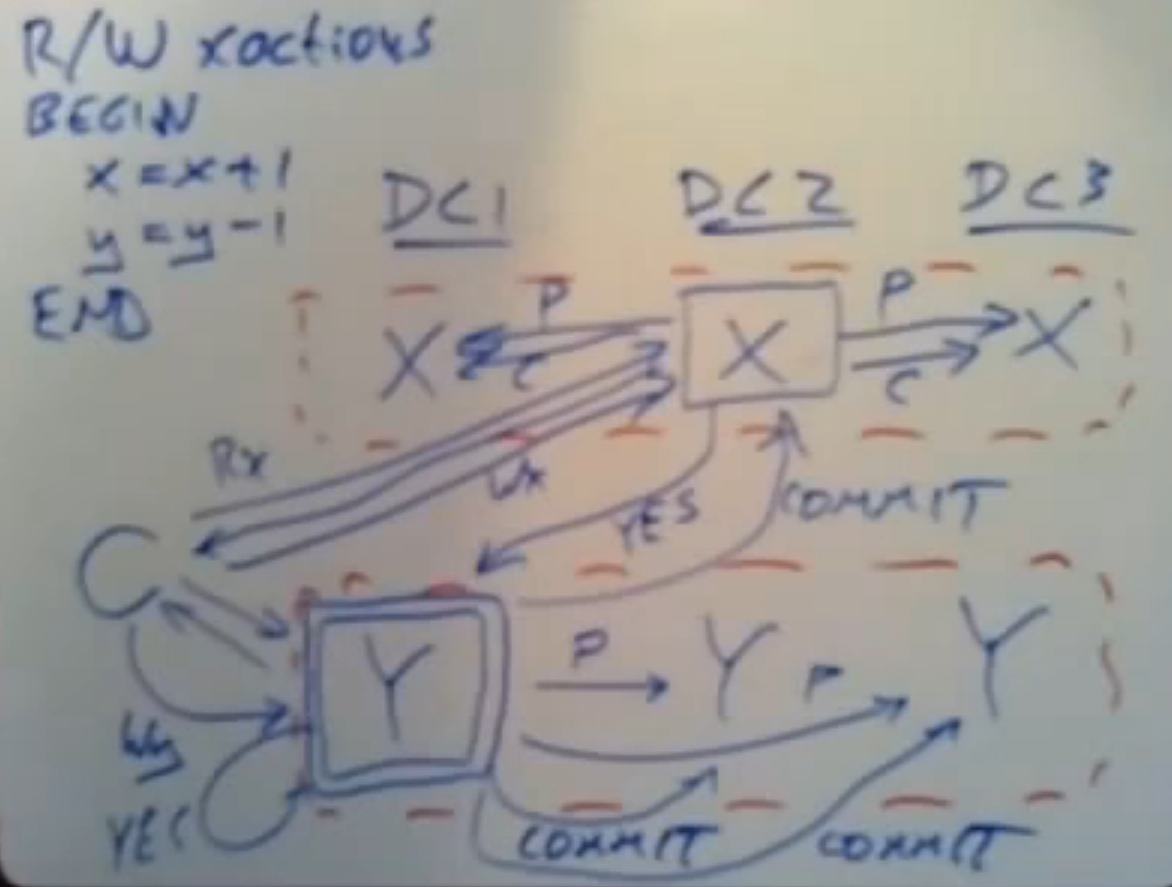 R/W xactions
BEGIN
x = x + 1
y = y - 1
END
DC1
DC2
DC3
X
P
C
X
P
C
X
Rx
Wx
YES
COMMIT
C
Y
P
Y
P
Y
Wy
YES
COMMIT
COMMIT